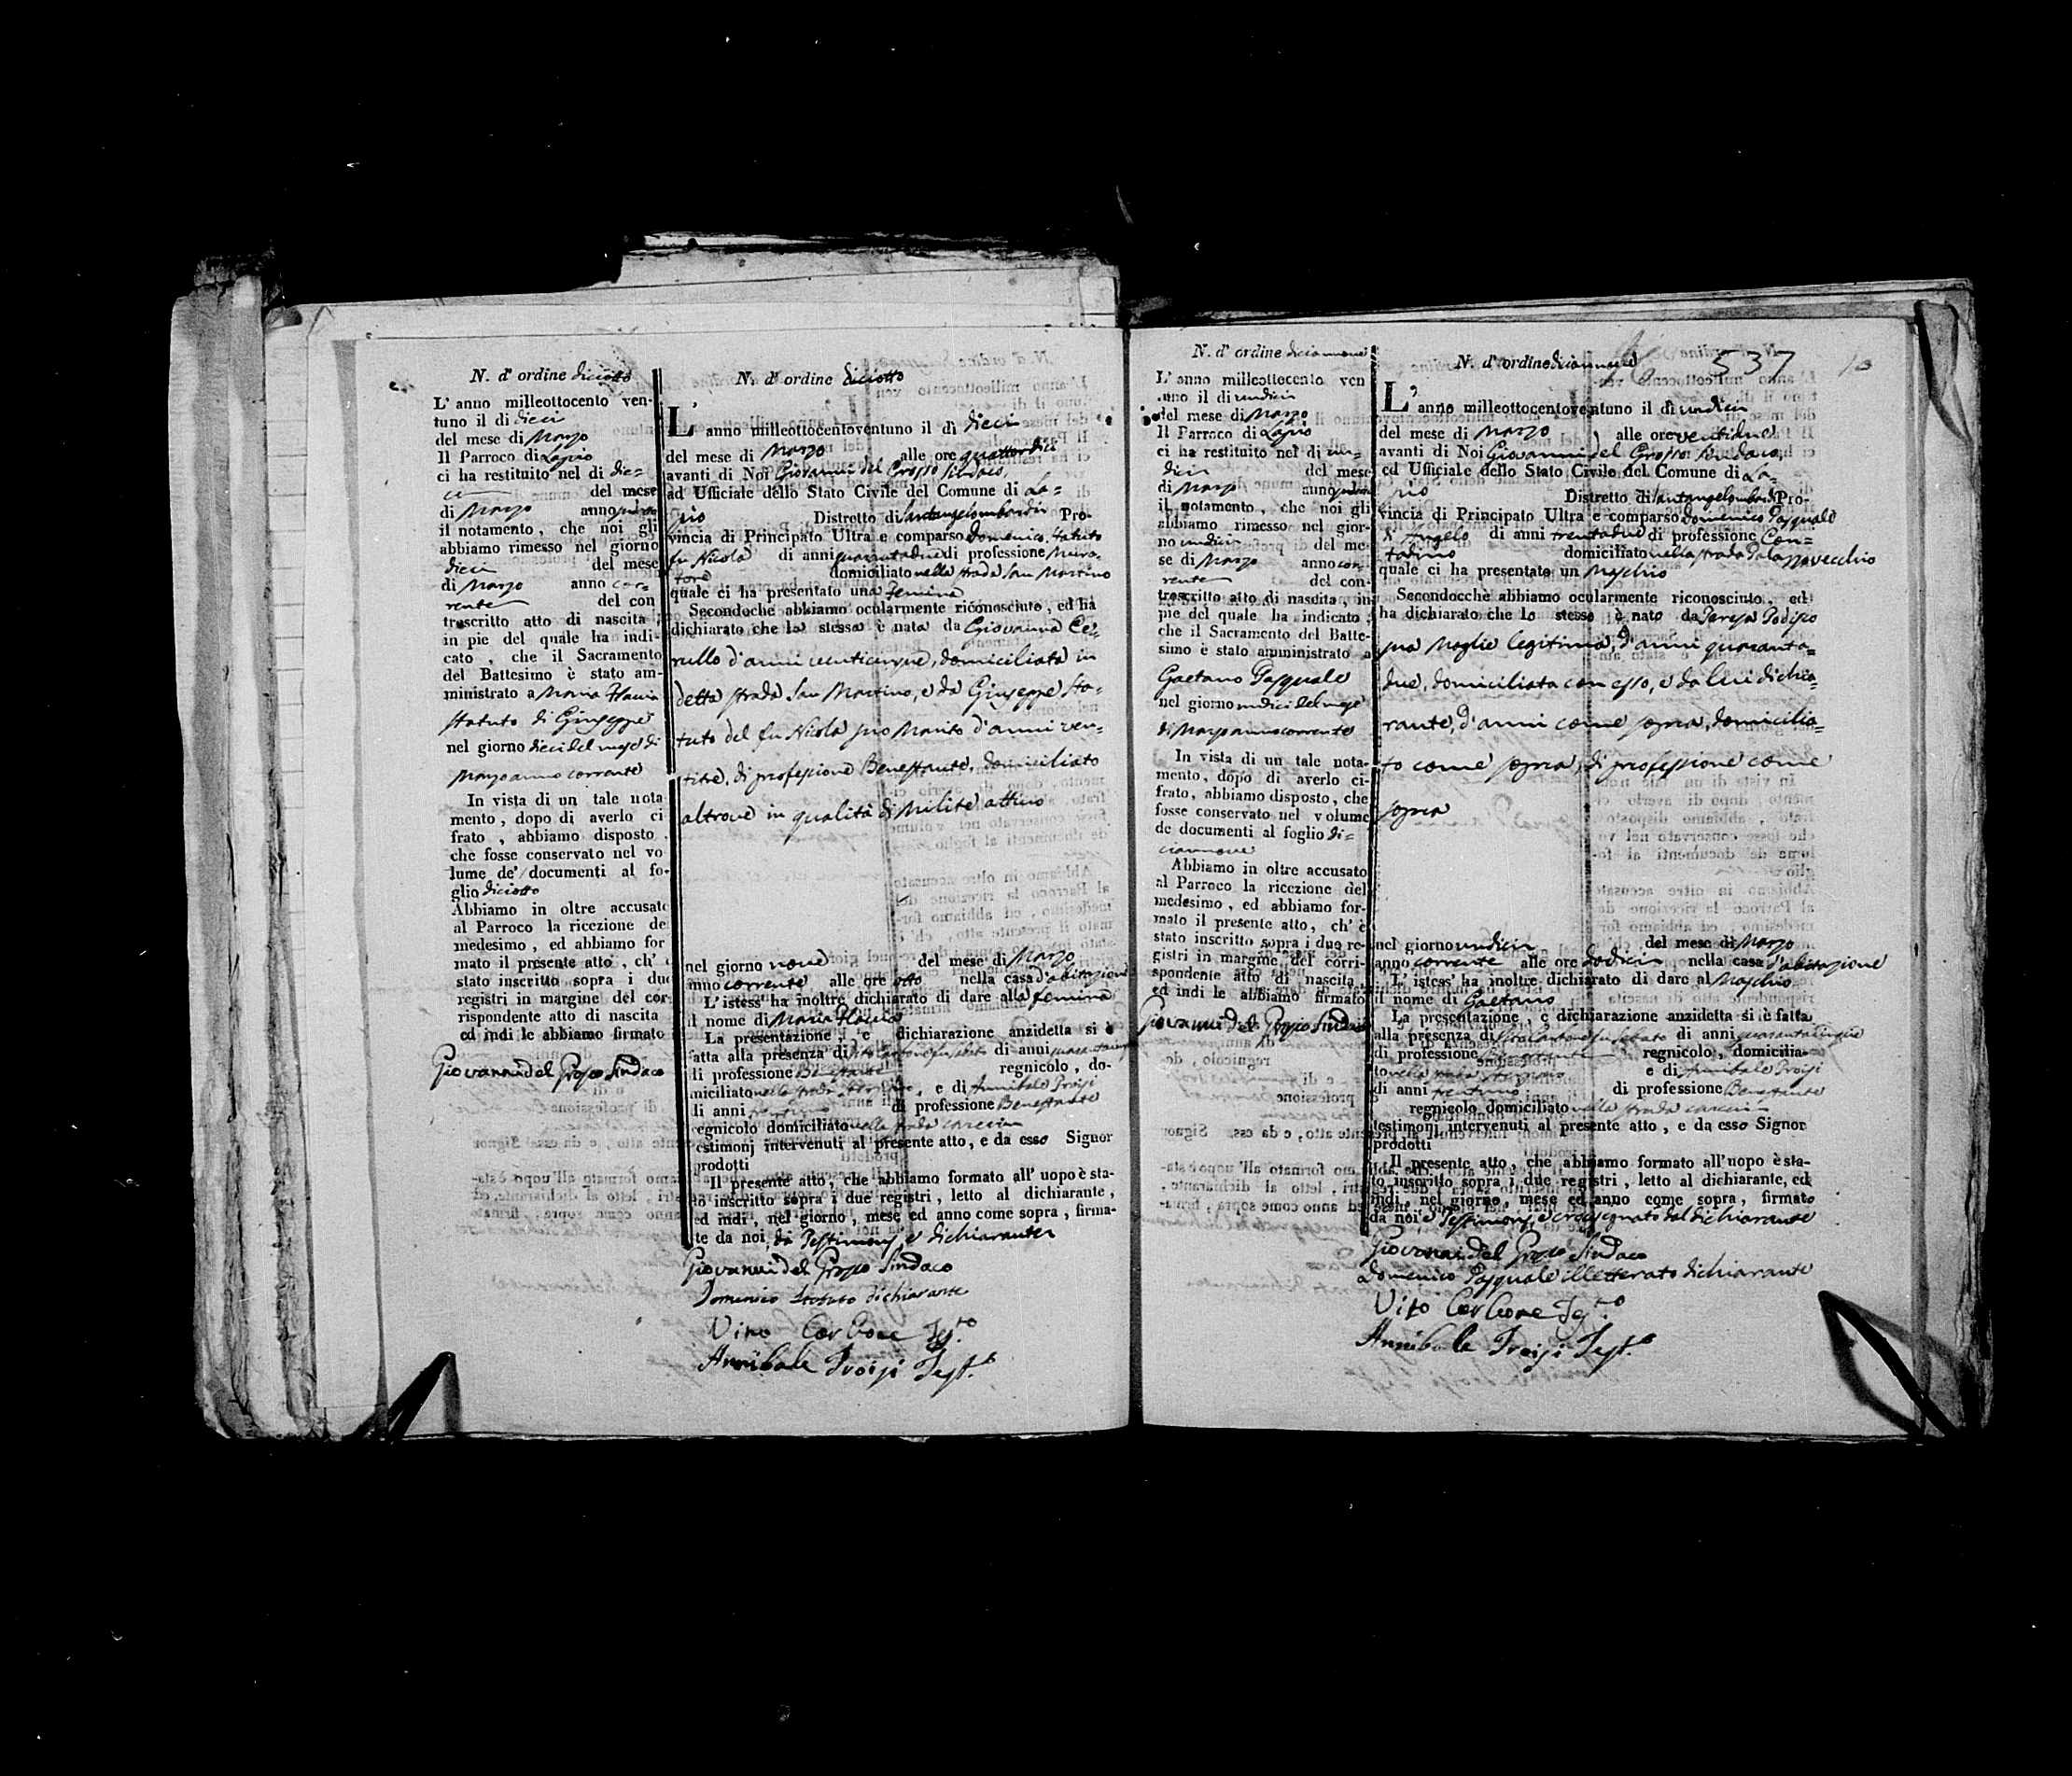 N. d' ordine diciotto
L' anno milleottocento ven-
tuno il dì dieci
del mese di Marzo
Il Parroco di Lapio
ci ha restituito nel dì die=
ci del mese
di Marzo anno
il notamento, che noi gli
abbiamo rimesso nel giorno
dieci del mese
di Marzo anno cor=
rente del con
trascritto atto di nascita,
in pie del quale ha indi-
cato , che il Sacramento
del Battesimo è stato am-
ministrato a Maria Flavia
Statuto di Giuseppe
nel giorno dieci del mese di
Marzo anno corrente
In vista di un tale nota
mento, dopo di averlo ci
frato , abbiamo disposto ,
che fosse conservato nel vo
lume de' documenti al fo-
glio diciotto
Abbiamo in oltre accusato
al Parroco la ricezione de
medesimo , ed abbiamo for
mato il presente atto , ch' è
stato inscritto sopra i due
registri in margine del cor
rispondente atto di nascita
ed indi le abbiamo firmato
Giovanni del Grosso Sindaco
N. d' ordine diciotto
L' anno milleottocentoventuno il dì dieci
del mese di Marzo alle ore quattordici
avanti di Noi Giovanni del Grosso Sindaco,
ad Ufficiale dello Stato Civile del Comune di La=
pio Distretto di Santangelombardi Pro-
vincia di Principato Ultra e comparso Domenico Statuto
fu Nicola di anni quarantadue di professione Mura=
tore domiciliato nella strada San Martino
quale ci ha presentato una femina
Secondochè abbiamo ocularmente riconosciuto , ed ha
dichiarato che la stessa è nata da Giovanna Ce=
rullo d'anni venticinque, domiciliata in
detta strada San Martino, e da Giuseppe Sta=
tuto del fu Nicola suo Marito d'anni ven=
titre, di professione Benestante, domiciliato
altrove in qualità di Milite attivo
nel giorno nove del mese di Marzo
anno corrente alle ore otto nella casa d'abitazione
L' istess' ha inoltre dichiarato di dare alla femina
il nome di Maria Flavia
La presentazione , e dichiarazione anzidetta si è
fatta alla presenza di Vito Carbone fu Sabato di anni
di professione Benestante regnicolo , do-
miciliato nella strada , e di Annibale Troisi
di anni trentuno di professione Benestante
regnicolo domiciliato nella strada
testimonj intervenuti al presente atto, e da esso Signor
prodotti
Il presente atto, che abbiamo formato all' uopo è sta-
to inscritto sopra i due registri , letto al dichiarante ,
ed indi , nel giorno , mese ed anno come sopra , firma-
te da noi, da Testimonj, e dichiarante
Giovanni del Grosso Sindaco
Domenico Statuto dichiarante
Vito Carbone Test.º
Annibale Troisi Test.º
N. d' ordine diciannove
L' anno milleottocento ven
tuno il dì undici
del mese di Marzo
Il Parroco di Lapio
ci ha restituito nel dì un=
dici del mese
di Marzo anno
il notamento, che noi gli
abbiamo rimesso nel gior-
no undici del me-
se di Marzo anno cor=
rente del con-
trascritto atto di nascita, in
pie del quale ha indicato ,
che il Sacramento del Batte-
simo è stato amministrato a
Gaetano Pasquale
nel giorno undici del mese
di Marzo anno corrente
In vista di un tale nota-
mento, dopo di averlo ci-
frato, abbiamo disposto, che
fosse conservato nel volume
de documenti al foglio di=
ciannove
Abbiamo in oltre accusato
al Parroco la ricezione del
medesimo , ed abbiamo for-
mato il presente atto, ch' è
stato inscritto sopra i due re-
gistri in margine del corri-
spondente atto di nascita ,
ed indi le abbiamo firmato
Giovanni del Grosso Sindaco
N. d' ordine diciannove 537
L' anno milleottocentoventuno il dì undici
del mese di Marzo alle ore ventidue
avanti di Noi Giovanni del Grosso Sindaco,
ed Ufficiale dello Stato Civile del Comune di La=
pio Distretto di Santangelombardi Pro-
vincia di Principato Ultra e comparso Domenico Pasquale
d'Angelo di anni trentadue di professione Con=
tadino domiciliato nella strada Palazzovecchio
quale ci ha presentato un Maschio
Secondocchè abbiamo ocularmente riconosciuto , ed
ha dichiarato che lo stesso è nato da Teresa Todisco
sua Moglie legitima, d'anni quaranta=
due, domiciliata con esso, e da lui dichia=
rante, d'anni come sopra, domicilia=
to come sopra, di professione come
sopra
nel giorno undici del mese di Marzo
anno corrente alle ore dodici nella casa d'abitazione
L' istess' ha inoltre dichiarato di dare al Maschio
il nome di Gaetano
La presentazione , e dichiarazione anzidetta si è fatta
alla presenza di Vito Carbone fu Sabato di anni quarantacinque
di professione Benestante regnicolo , domicilia-
to nella strada e di Annibale Troisi
di anni trentuno di professione Benestante
regnicolo domiciliato nella strada
testimonj intervenuti al presente atto , e da esso Signor
prodotti
Il presente atto, che abbiamo formato all'uopo è sta-
to inscritto sopra i due registri , letto al dichiarante, ed
indi , nel giorno , mese ed anno come sopra , firmato
da noi, e Testimonj, e crocesegnato dal dichiarante
Giovanni del Grosso Sindaco
Domenico Pasquale illetterato dichiarante
Vito Carbone Test.º
Annibale Troisi Test.º